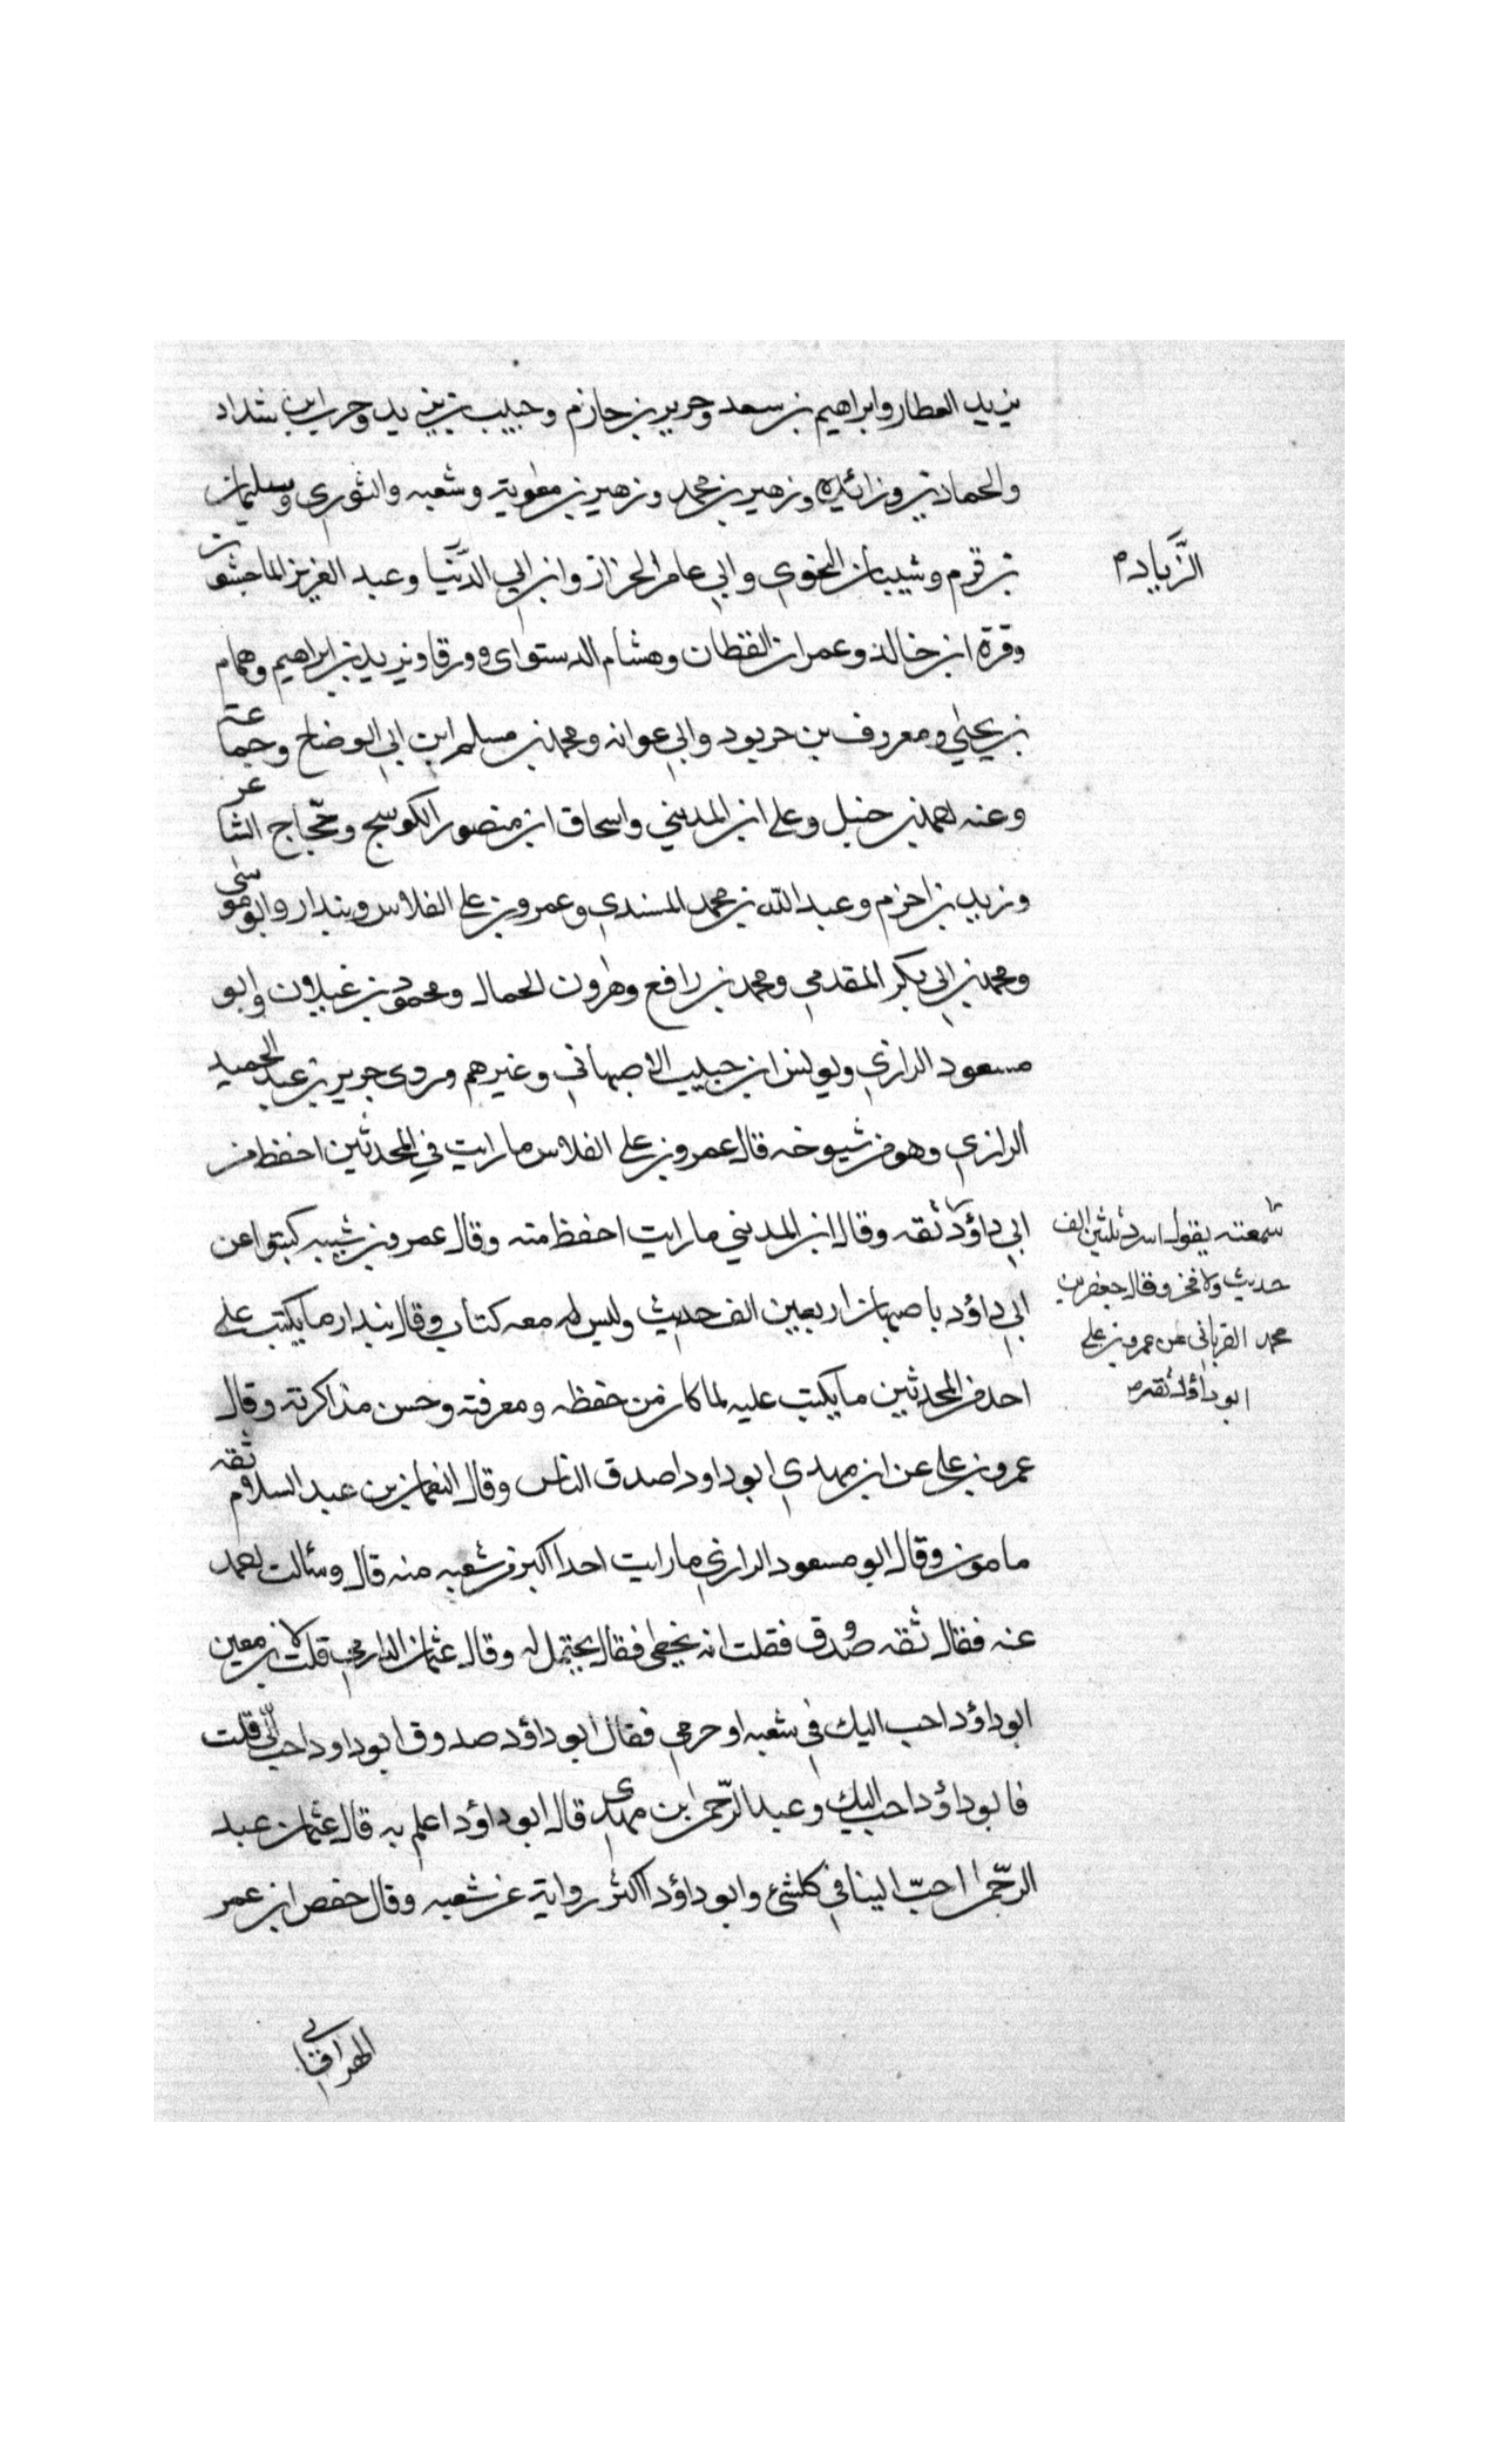 يزيد العطار وابراهيم بن سعد وجرير بن حازم وحبيب بن يزيد وحرب ابن شداد
والحمادين وزائده وزهير بن محمد وزهير بن معٰوية وشعبه والثوري وسليمان
بن قرم وشيبان النحوي وابي عامر الخزاز وابن ابي الدّنيا وعبد العزيز الماجشون
الزّيادم
وقرة ابن خالد وعمران القطان وهشام الدستواى وورقا ويزيد بن ابراهيم وهمام
بن يحيٰى ومعروف بن خربود وابي عوانه ومحمد بن مسلم ابن ابي الوضاح وجماعة
وعنه احمد بن حنبل وعلي ابن المديني واسحاق ابن منصور الكوسج وحجّاج الشاعر
وزيد بن اخزم وعبد الله بن محمد المسندي وعمرو بن علي الفلاس وبندار وابو موسٰى
ومحمد بن ابي بكر المقدمي ومحمد بن رافع وهٰرون الحمال ومحمود بن غيلان وابو
مسعود الرازي ويونس ابن حبيب الاصبهاني وغيرهم وروى جرير بن عبد الحميد
الرازي وهو من شيوخه قال عمرو بن علي الفلاس ما رايت في المحدثين احفظ من
ابي داؤد ثقه وقال ابن المديني ما رايت احفظ منه وقال عمرو بن شيبه كتبوا عن
سمعته يقول اسرد ثلثين الف
حديث ولا فخر وقال جعفر بن
محمد الفرياني عن عمرو بن علي
ابو داؤد ثقه
ابي داؤد باصبهان اربعين الف حديث وليس له معه كتاب وقال بندار ما يكتب على
احد من المحدثين ما يكتب عليه لما كان من حفظه ومعرفته وحسن مذاكرته وقال
عمرو بن علي عن ابن مهدي ابو داود اصدق الناس وقال النعمان بن عبد السلام ثقه
مامون وقال ابو مسعود الرازي ما رايت احدا اكبر من شعبه منه قال وسالت احمد
عنه فقال ثقه صدوق فقلت انه يخطي فقال يحتمل له وقال عثمان الدارمي قلت لابن معين
ابو داؤد احب اليك في شعبه او حرمي فقال ابو داؤد صدوق ابو داود احب الّي قلت
فابو داؤد احب اليك وعبد الرّحمٰن ابن مهدى قال ابو داؤد اعلم به قال عثمان عبد
الرحّمٰن احبّ الينا في كلشئ وابو داؤد اكثر رواية عن شعبه وقال حفص ابن عمر
المهراقاني